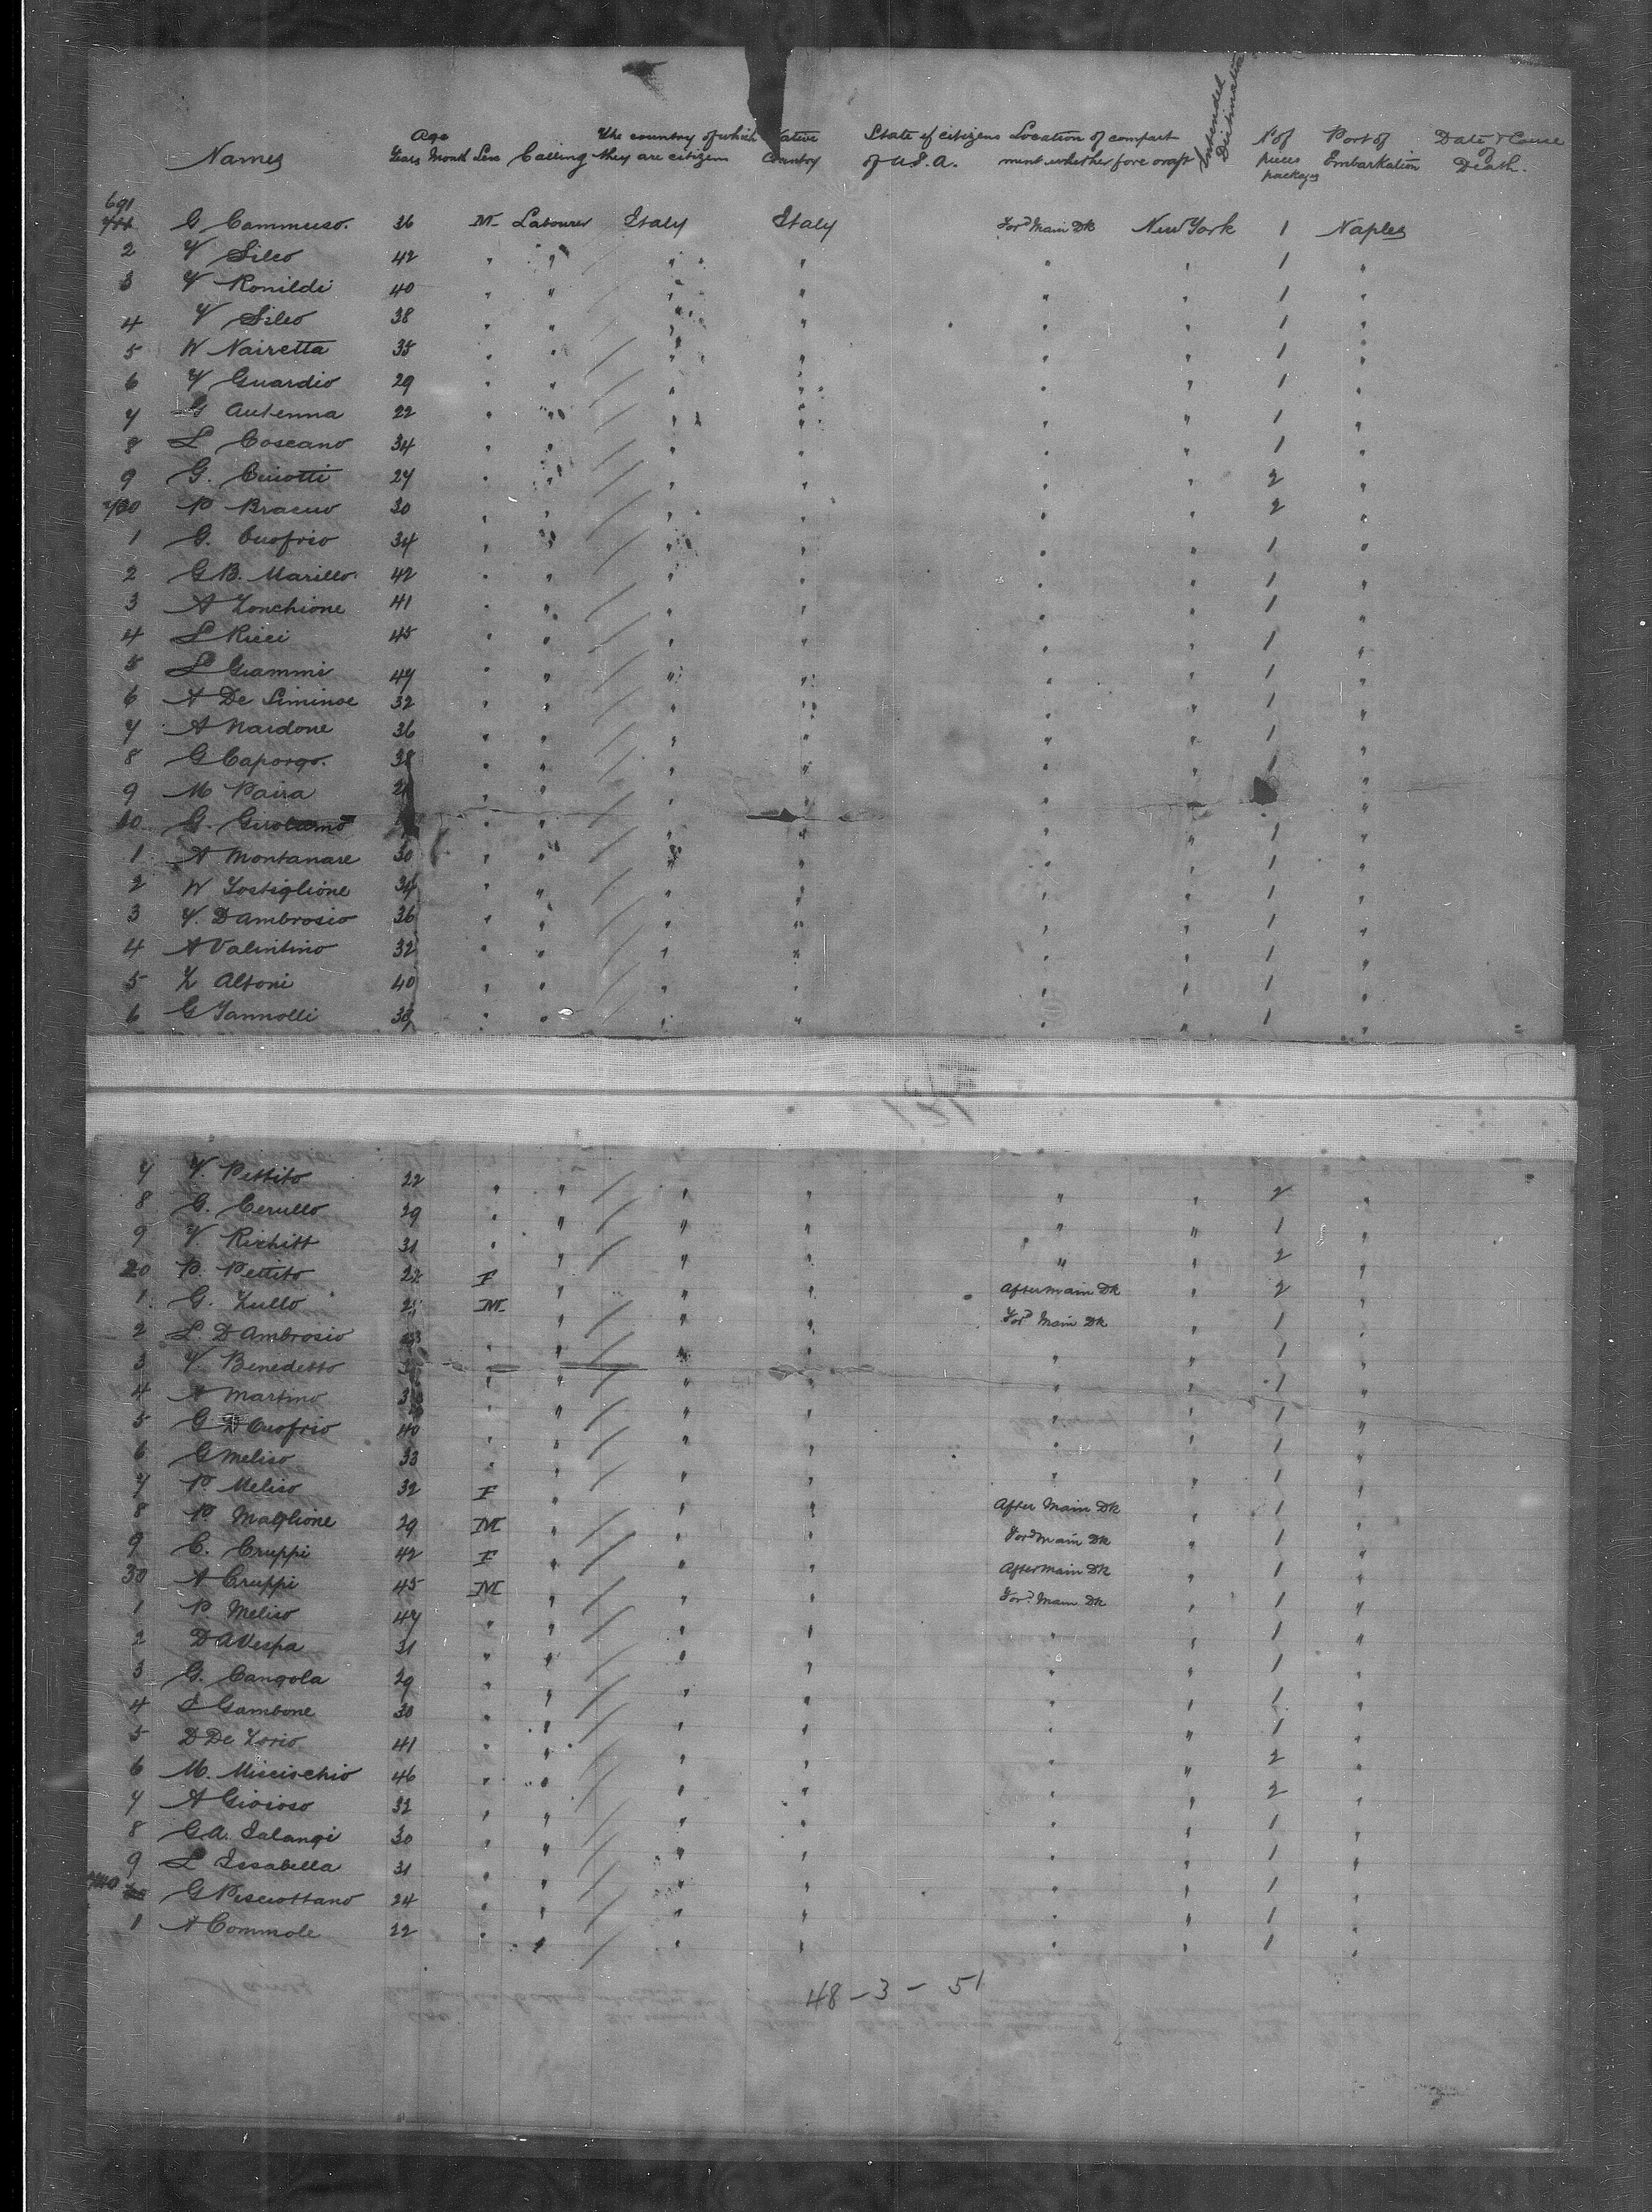 Names Age Years Month Sex Calling The country of which they are citizens Native Country State of citizens of U.S.A. Location of compartment whether fore or aft Intended Destination No of pieces packages Port of Embarkation Date & Cause of Death.
691
G Cammuso. 36 M Labourer Italy Italy For'd Main Dk New York 1 Naples
2 V Sileo 42 " " " " " " 1 "
3 V Ronildi 40 " " " " " " 1 "
4 V Sileo 38 " " " " " " 1 "
5 N Nairetta 35 " " " " " " 1 "
6 V Guardio 29 " " " " " " 1 "
7 G Autenna 22 " " " " " " 1 "
8 L Coscano 34 " " " " " " 1 "
9 G. Cuiotti 27 " " " " " " 2 "
P 30 " " " " " " 2 "
1 G. Cuofrio 34 " " " " " " 1 "
2 G.B. Marillo 42 " " " " " " 1 "
3 A Zonchione 41 " " " " " " 1 "
4 L Ricci 45 " " " " " " 1 "
5 L Giammi 47 " " " " " " 1 "
6 A De Siminoe 32 " " " " " " 1 "
7 A Nardone 36 " " " " " " 1 "
8 G Caporgo. 38 " " " " " " 1 "
9 M Paira " " " " " " "
10 G. Girolamo " " " " " " 1 "
1 A Montanare 30 " " " " " " 1 "
2 N Lostiglione 34 " " " " " " 1 "
3 V. D Ambrosio 36 " " " " " " 1 "
4 A Valintino 32 " " " " " " 1 "
5 Z Altoni 40 " " " " " " 1 "
6 G Iannolli 38 " " " " " " 1 "
7 V. Pettito 22 " " " " " " 2 "
8 G. Cerullo 29 " " " " " " 1 "
9 V. Richitt 31 " " " " " " 2 "
20 P. Pettito 22 F " " " After Main Dk " 2 "
1 G. Zullo M " " " For'd Main Dk " 1 "
2 L. D Ambrosio " " " " " " 1 "
3 V. Benedetto " " " " " " 1 "
4 A Martino " " " " " " 1 "
5 G D Cuofrio 40 " " " " " " 1 "
6 G Meliso 33 " " " " " " 1 "
7 P Meliso 32 F " " " After Main Dk " 1 "
8 P. Maglione 29 M " " " For'd Main Dk " 1 "
9 C. Cruppi 42 F " " " After Main Dk " 1 "
30 A Cruppi 45 M " " " For'd Main Dk " 1 "
1 P. Meliso 47 " " " " " " 1 "
2 D A Vespa 31 " " " " " " 1 "
3 G. Cangola 29 " " " " " " 1 "
4 Gambone 30 " " " " " " 1 "
5 D De Zorio 41 " " " " " " 2 "
6 M. Miscischio 46 " " " " " " 2 "
7 A Gioioso 32 " " " " " " 1 "
8 G.A. Salangi 30 " " " " " " 1 "
9 L Issabella 31 " " " " " " 1 "
G Pisciottano 24 " " " " " " 1 "
1 A Commole 22 " " " " " " 1 "
48 - 3 - 51